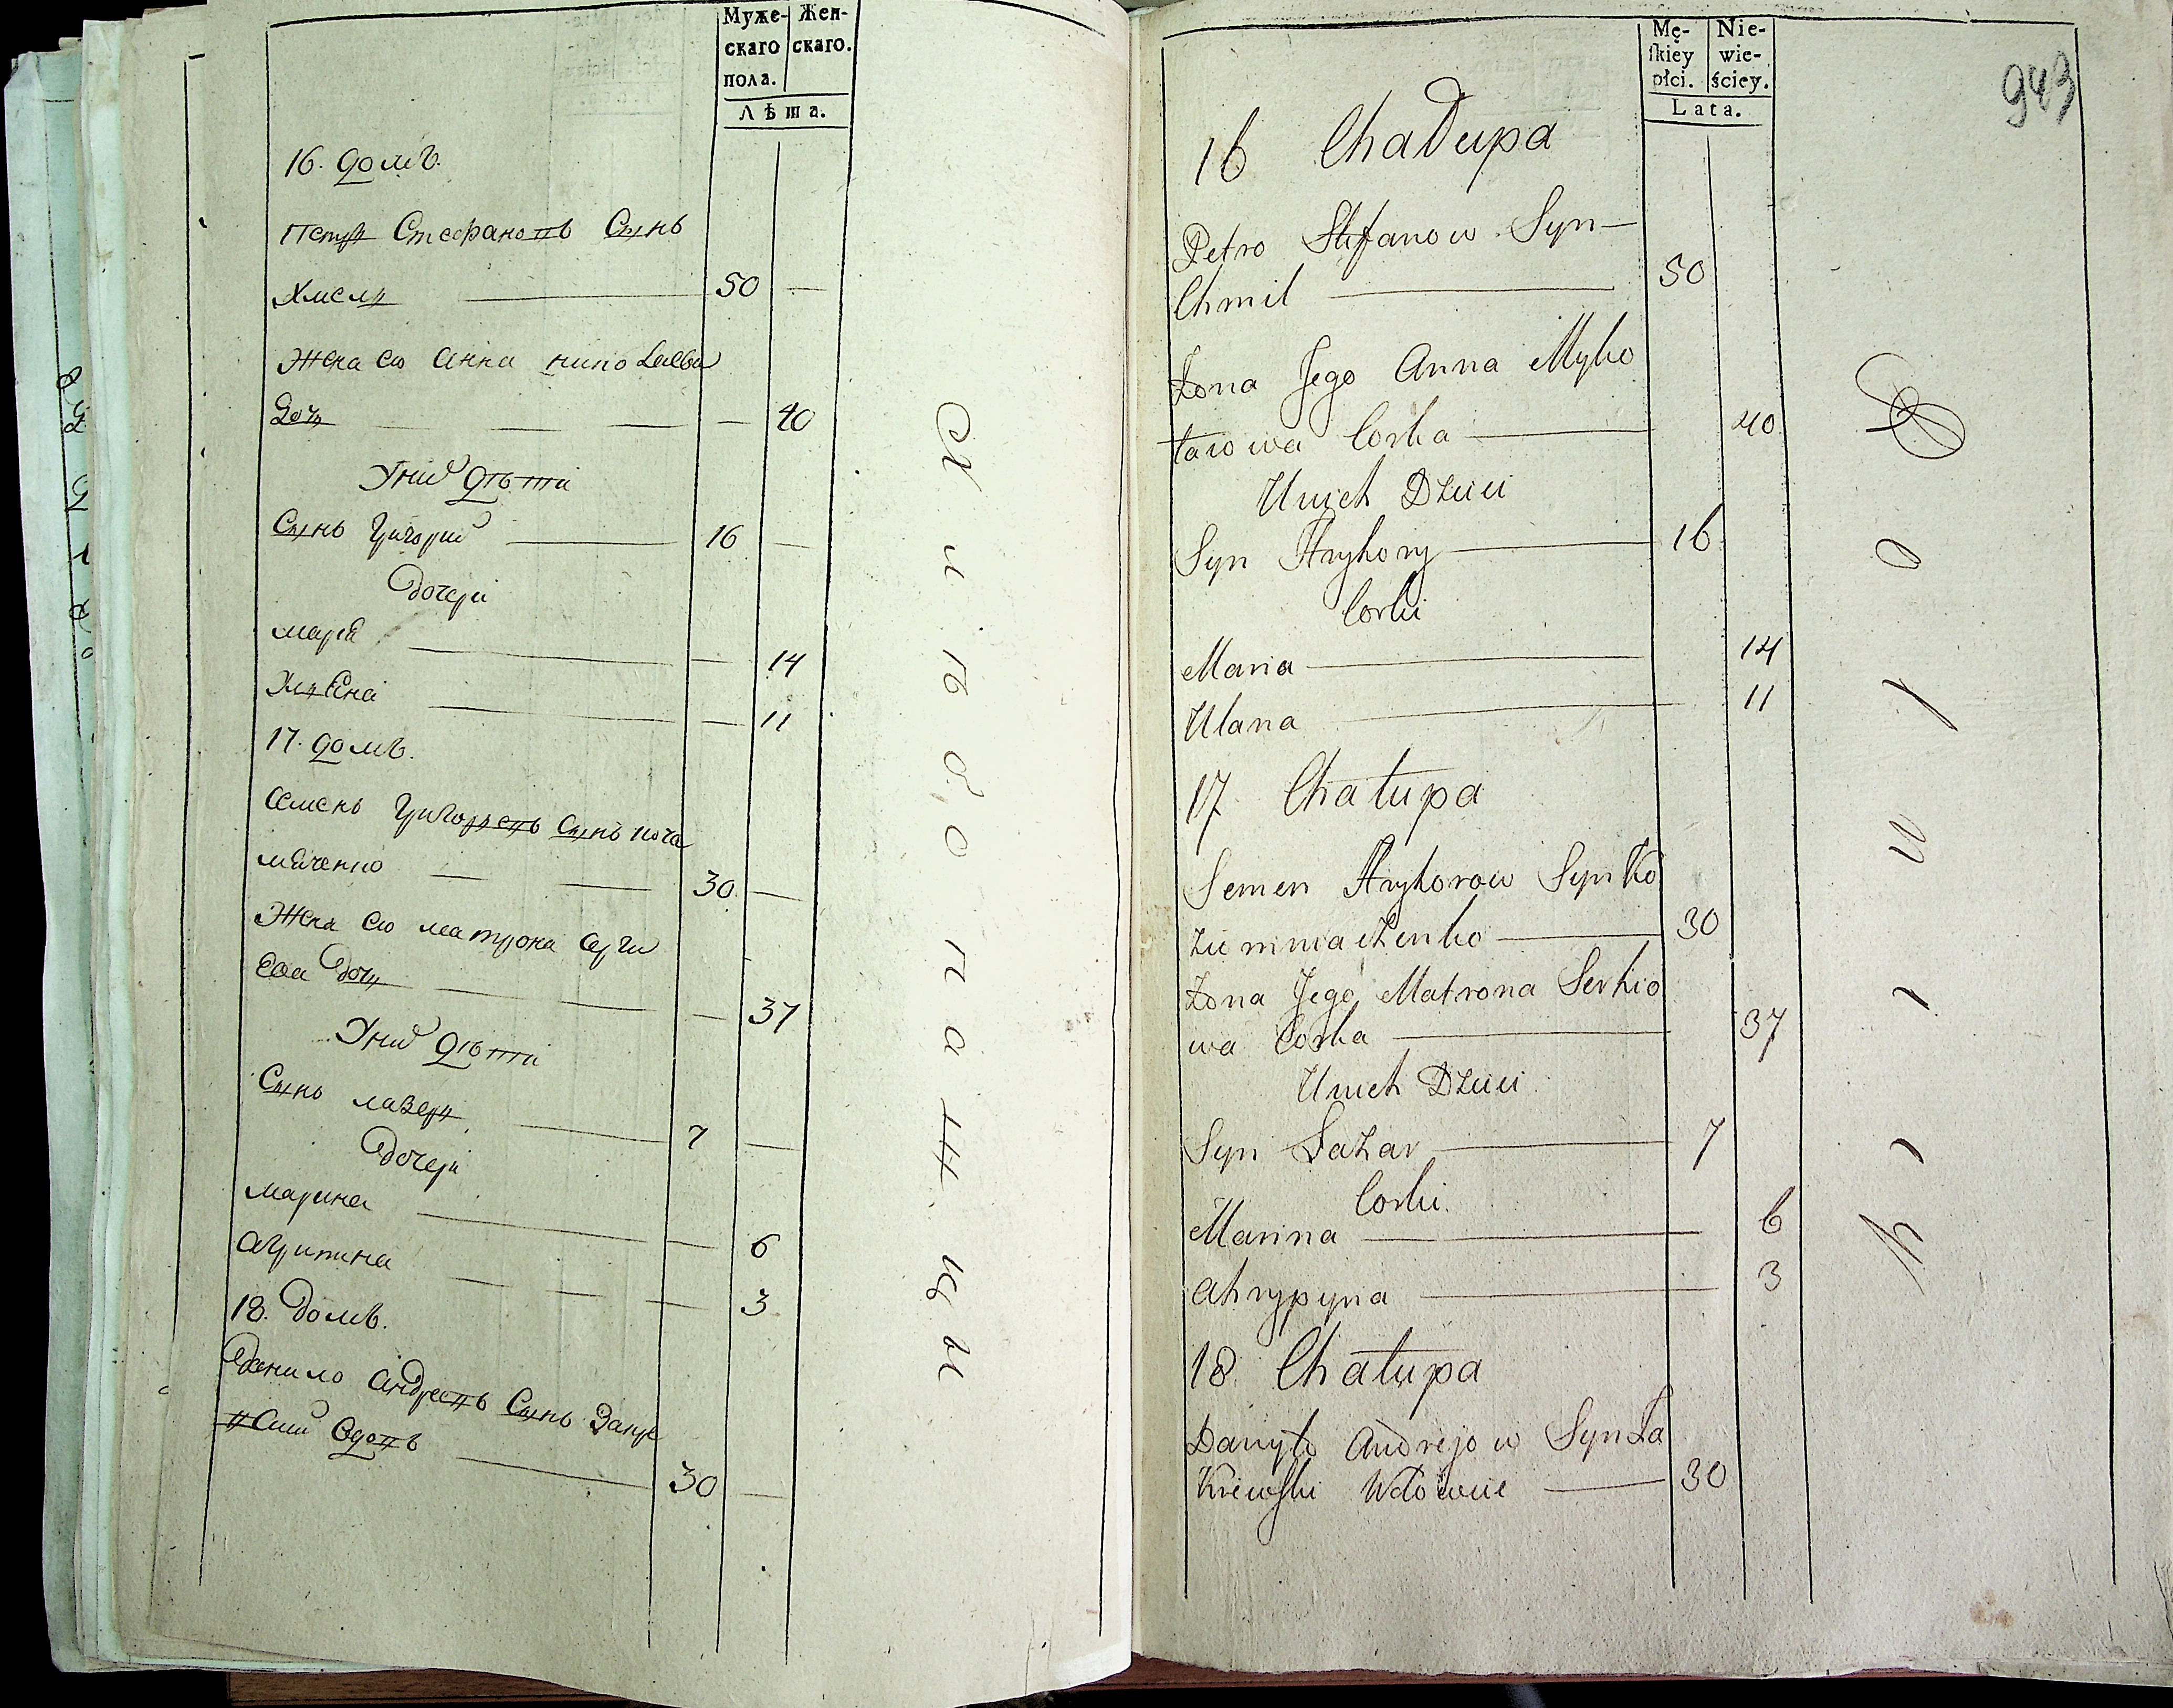 Муже-
скаго
пола.
Жен-
скаго.
Лѣта.
16. домъ.
Петръ Стефановъ Сынъ
Хмель 50
Жена его Анна николаева
Дочь 40
Уних дѣти
Сынъ Григорий 16
дочери
Мария
14
11
17. домъ.
Семенъ Григорьевъ Сынъ
30
Жена его матрона Серги
ева дочь 37
Уних дѣти
Сынъ лазерь 7
дочери
Марина 6
Агрипина 3
18. домъ.
Данило Андреевъ Сынъ Закре
вский вдовъ 30
хлѣбопашцы
Mę-
skiey
płci.
Nie-
wie-
ściey.
Lata.
943
16 Chałupa
Petro Stefanow Syn
Chmil 50
Żona Jego Anna Myko
łaiowa Corka 40
Unich Dzieci
Syn Hryhory 16
Corki
Maria 14
Ulana 11
17 Chałupa
Semen Hryhorow Syn Ko
30
Żona Jego Matrona Serhio
wa Corka 37
Unich Dzieci
Syn Łazar 7
Corki.
Marina 6
Ahrypyna 3
18 Chałupa
Danyło Andrejow Syn Za
Krewski Wdowiec 30